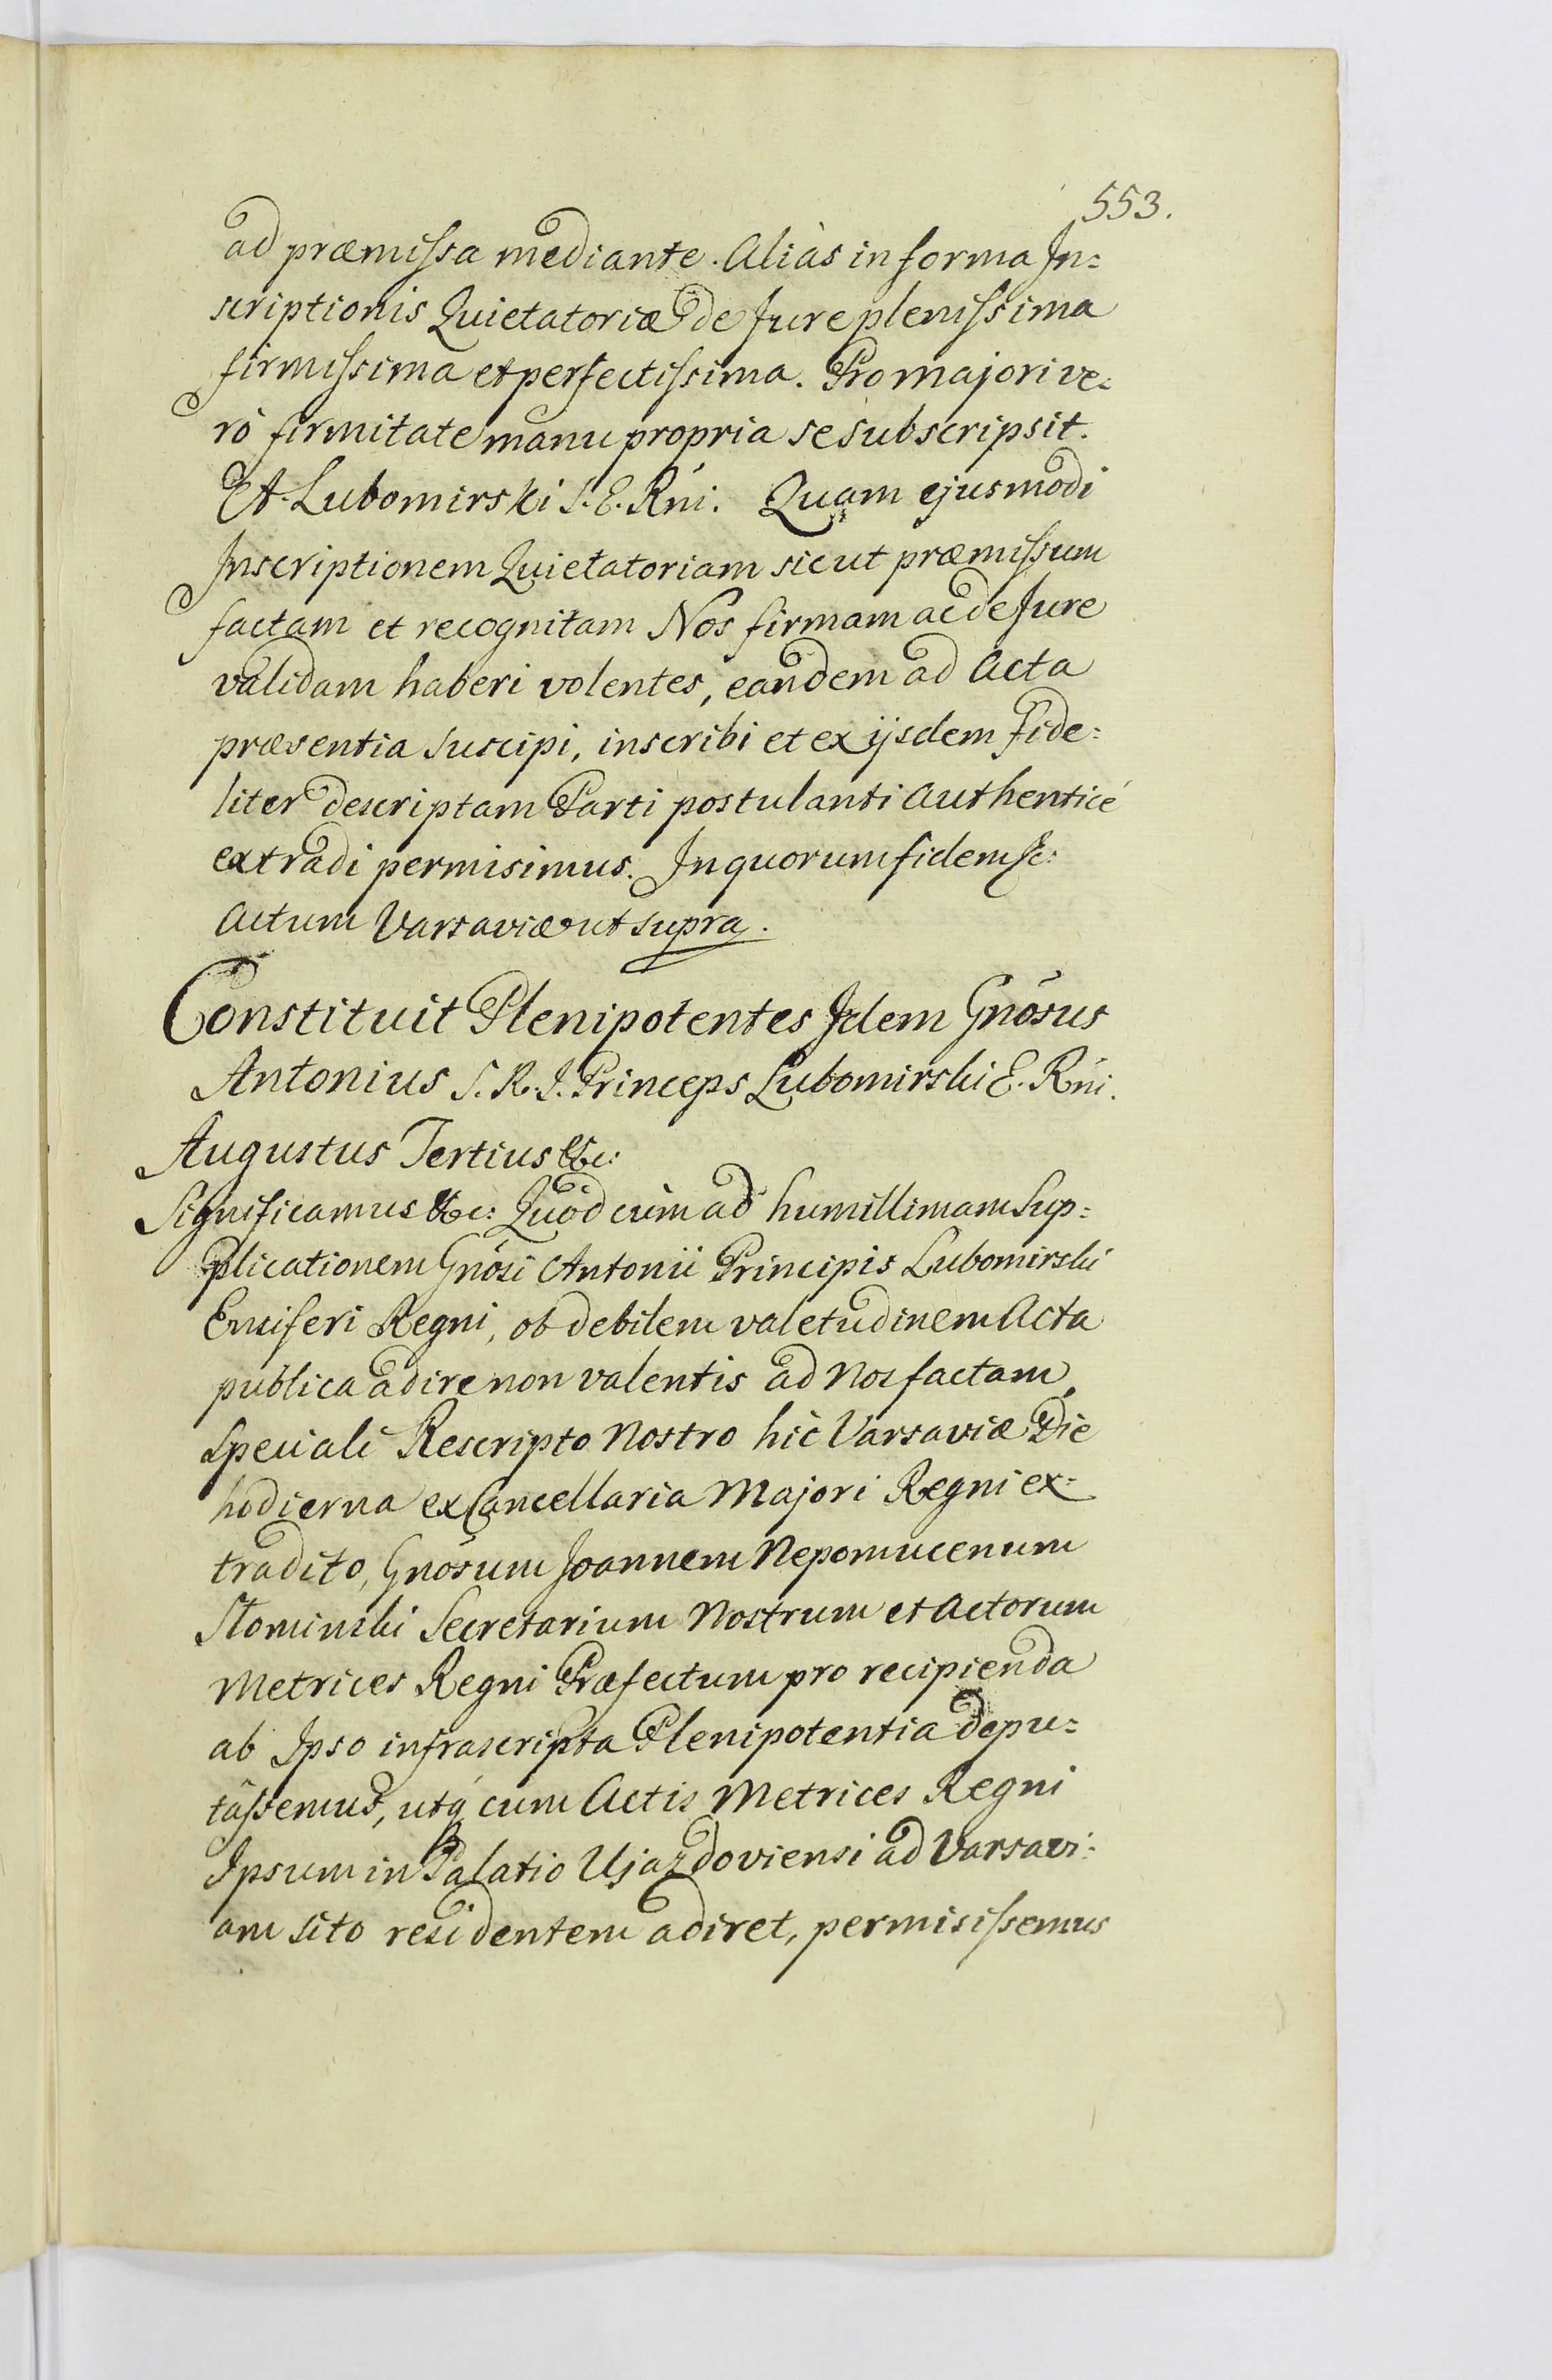 553.
ad præmissa mediante. Aliàs in forma In=
scriptionis Quietatoriæ de Jure plenissima
firmissima et perfectissima. Pro majori ve=
rò firmitate manu propria se subscripsit.
A. Lubomirski S. E. Rni. Quam ejusmodi
Inscriptionem Quietatoriam sicut præmissum
factam et recognitam Nos firmam ac de Jure
validam haberi volentes, eandem ad Acta
præsentia suscipi, inscribi et ex ijsdem fide=
liter descriptam Parti postulanti Authenticé
extradi permisimus. In quorum fidem &c:
Actum Varsaviæ ut supra.
Constituit Plenipotentes Idem Gnōsus
Antonius S. R. I. Princeps Lubomirski E. Rni.
Augustus Tertius &c:
Significamus &c: Quòd cùm ad humillimam Sup=
plicationem Gnōsi Antonii Principis Lubomirski
Ensiferi Regni, ob debilem valetudinem Acta
publica adire non valentis ad Nos factam,
Speciali Rescripto Nostro hìc Varsaviæ Die
hodierna ex Cancellaria Majori Regni ex=
tradito, Gnōsum Joannem Nepomucenum
Słominski Secretarium Nostrum et Actorum
Metrices Regni Præfectum pro recipienda
ab Ipso infrascripta Plenipotentia depu=
tâssemus, utq́ cum Actis Metrices Regni
Ipsum in Palatio Ujazdoviensi ad Varsavi=
am sito residentem adiret, permisissemus